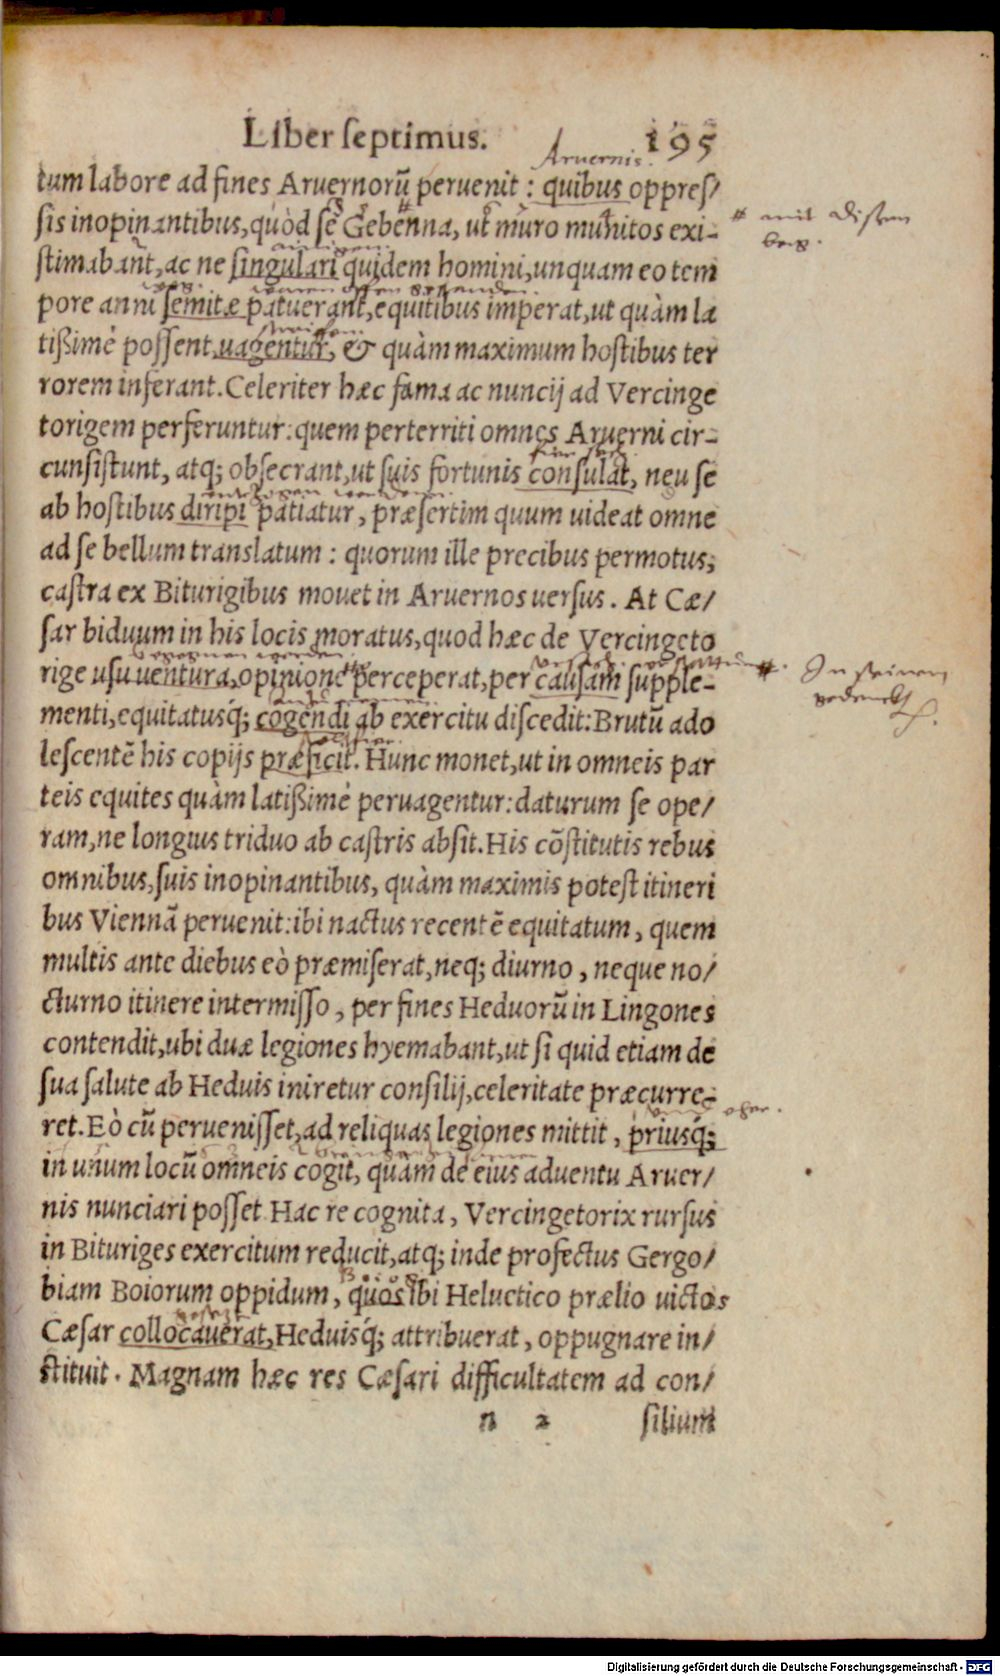 Liber ſeptimus. 195
Aruernis.
tum labore ad fines Aruernorū peruenit : quibus oppreſ/
ſis inopinantibus, quòd ſe Gebenna, ut muro munitos exi-
# mit diſem
berg.
ſtimabant, ac ne ſingulari quidem homini, unquam eo tem
pore anni ſemitæ patuerant, equitibus imperat, ut quàm la
tißimè poſſent, uagentur, & quàm maximum hoſtibus ter
rorem inferant. Celeriter hæc fama ac nuncij ad Vercinge
torigem perferuntur: quem perterriti omnes Aruerni cir-
cunſiſtunt, atq; obſecrant, ut ſuis fortunis conſulat, neu ſe
ab hoſtibus diripi patiatur, præſertim quum uideat omne
ad ſe bellum translatum : quorum ille precibus permotus,
caſtra ex Biturigibus mouet in Aruernos uerſus. At Cæ/
ſar biduum in his locis moratus, quod hæc de Vercingeto
rige uſu uentura, opinione perceperat, per cauſam ſupple-
# In ſeinem
gedenckh
menti, equitatusq́; cogendi ab exercitu diſcedit: Brutū ado
leſcentē his copijs præficit. Hunc monet, ut in omneis par
teis equites quàm latißimè peruagentur: daturum ſe ope/
ram, ne longius triduo ab caſtris abſit. His cōſtitutis rebus
omnibus, ſuis inopinantibus, quàm maximis poteſt itineri
bus Viennā peruenit: ibi nactus recentē equitatum, quem
multis ante diebus eò præmiſerat, neq; diurno, neque no/
cturno itinere intermiſſo, per fines Heduorū in Lingones
contendit, ubi duæ legiones hyemabant, ut ſi quid etiam de
ſua ſalute ab Heduis iniretur conſilij, celeritate præcurre-
ret. Eò cū perueniſſet, ad reliquas legiones mittit, priusq́;
in unum locū omneis cogit, quàm de eius aduentu Aruer/
nis nunciari poſſet. Hac re cognita, Vercingetorix rurſus
in Bituriges exercitum reducit, atq; inde profectus Gergo/
biam Boiorum oppidum, quos ibi Heluetico prælio uictos
Cæſar collocauerat, Heduisq́; attribuerat, oppugnare in/
ſtituit. Magnam hæc res Cæſari difficultatem ad con/
n 2 ſilium
Digitalisierung gefördert durch die Deutsche Forschungsgemeinschaft - DFG